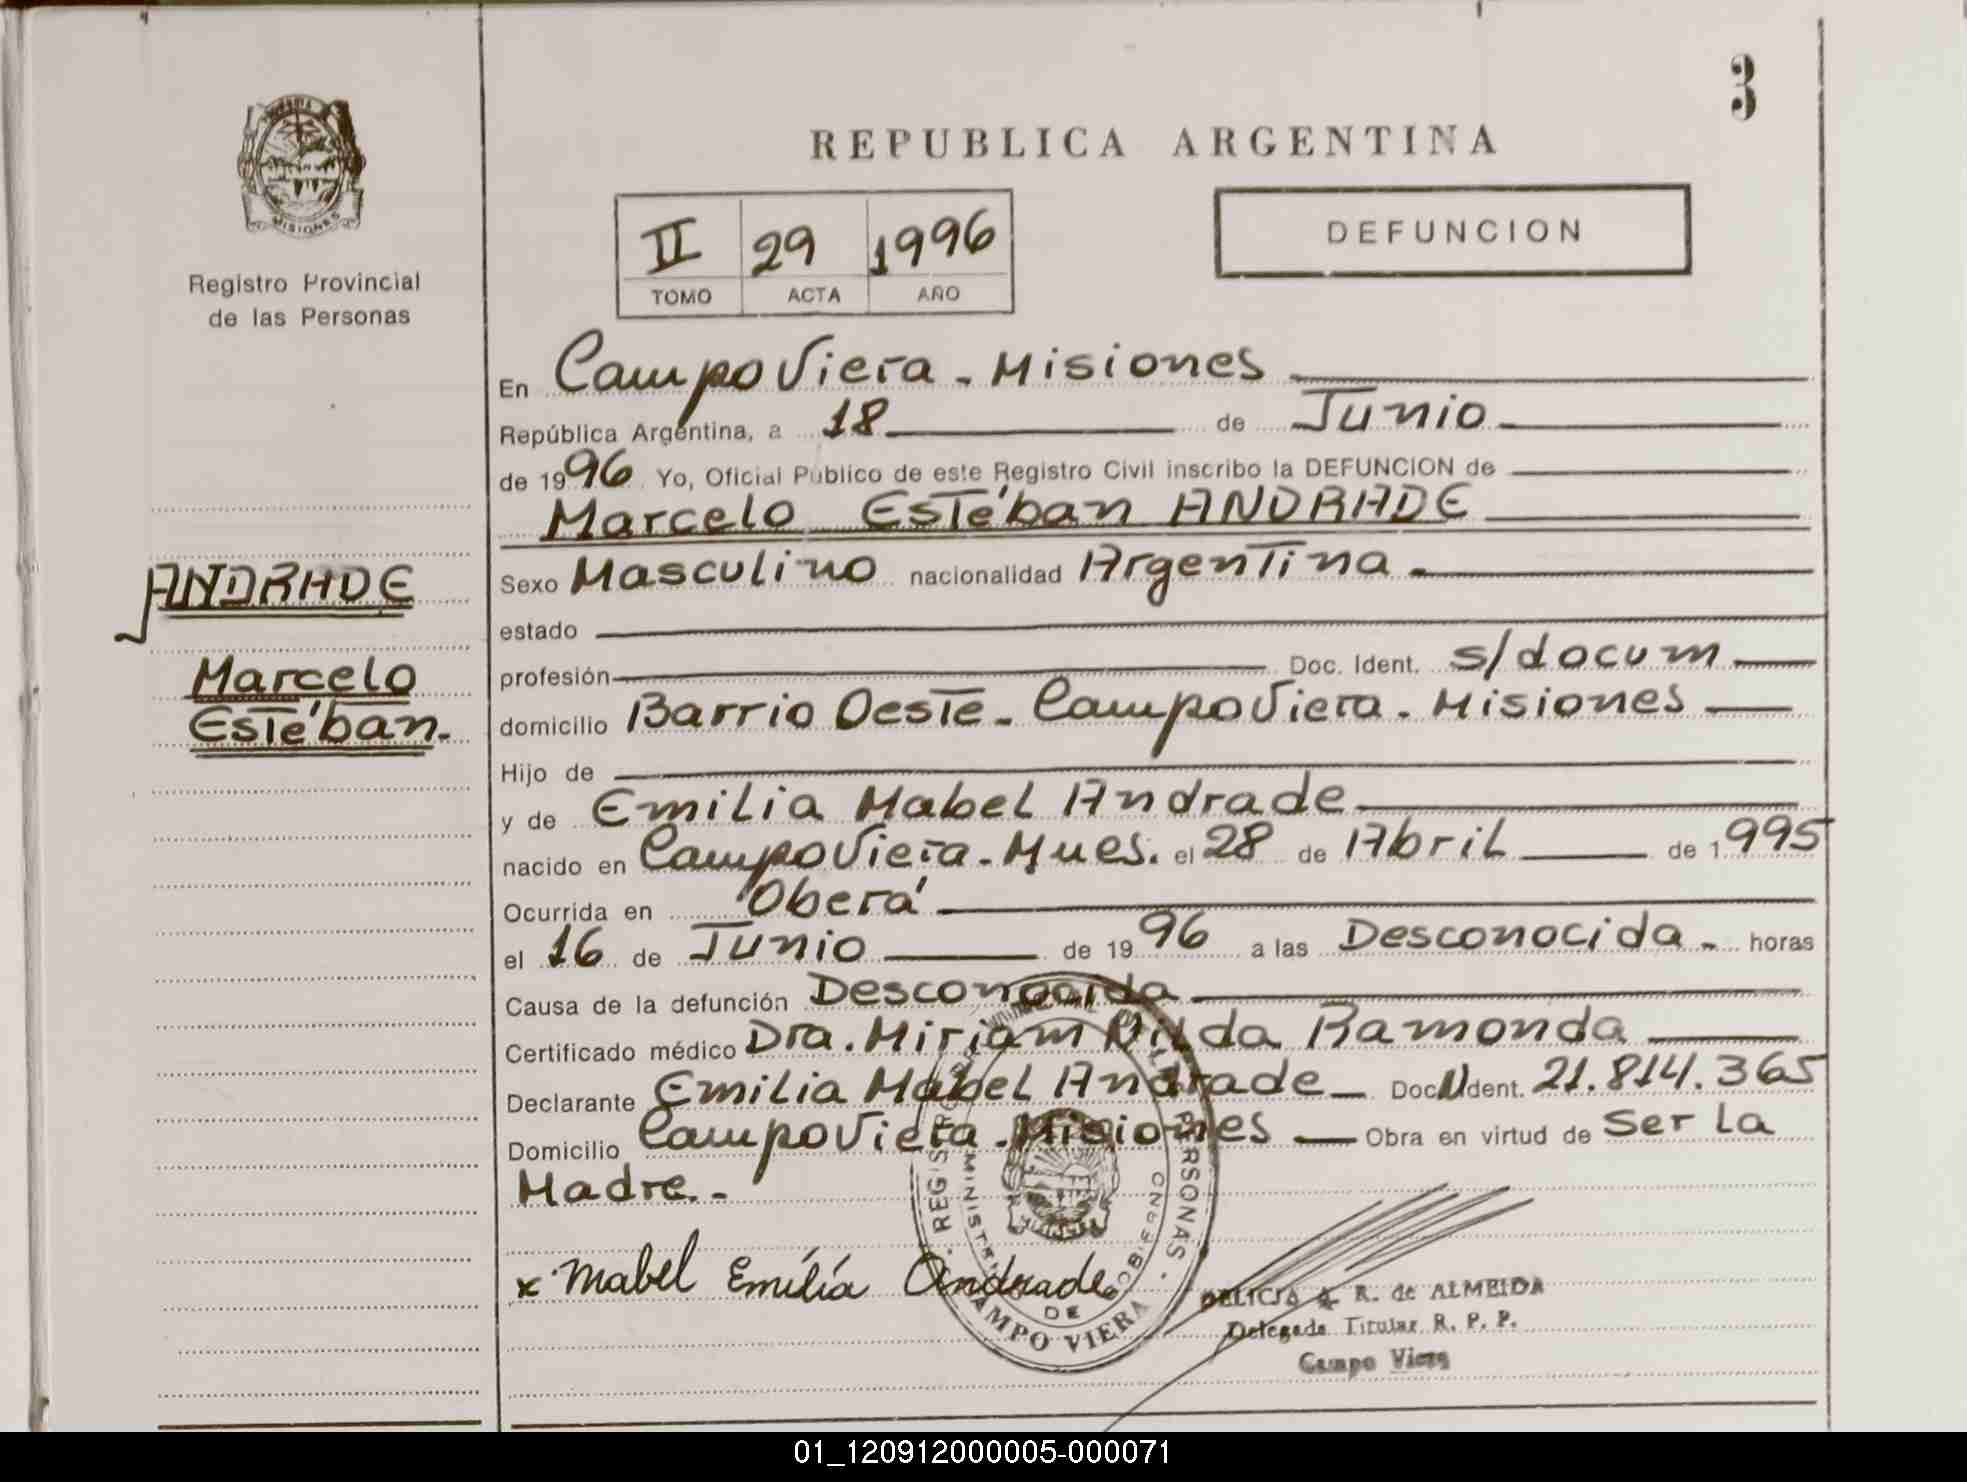 3
REPUBLICA ARGENTINA
MISIONES
Registro Provincial
de las Personas
II 29 1996
TOMO ACTA AÑO
DEFUNCION
En Campo Viera - Misiones
República Argentina, a 18 de Junio
de 1996 Yo, Oficial Público de este Registro Civil inscribo la DEFUNCION de
Marcelo Estéban ANDRADE
ANDRADE
Marcelo
Estéban.
Sexo Masculino nacionalidad Argentina
estado
profesión Doc. Ident. s/docum
domicilio Barrio Oeste - Campo Viera - Misiones
Hijo de
y de Emilia Mabel Andrade
nacido en Campo Viera - Mnes. el 28 de Abril de 1995
Ocurrida en Oberá
el 16 de Junio de 1996 a las Desconocida - horas
Causa de la defunción Desconocida
Certificado médico Dra. Miriam Nilda Ramonda
Declarante Emilia Mabel Andrade - Doc. Ident. 21.814.365
Domicilio Campo Viera - Misiones Obra en virtud de Ser la
Madre.-
x Mabel Emilia Andrade
CAMPO VIERA
DELICIA R. de ALMEIDA
Delegada Titular R. P. P.
Campo Viera
01_120912000005-000071